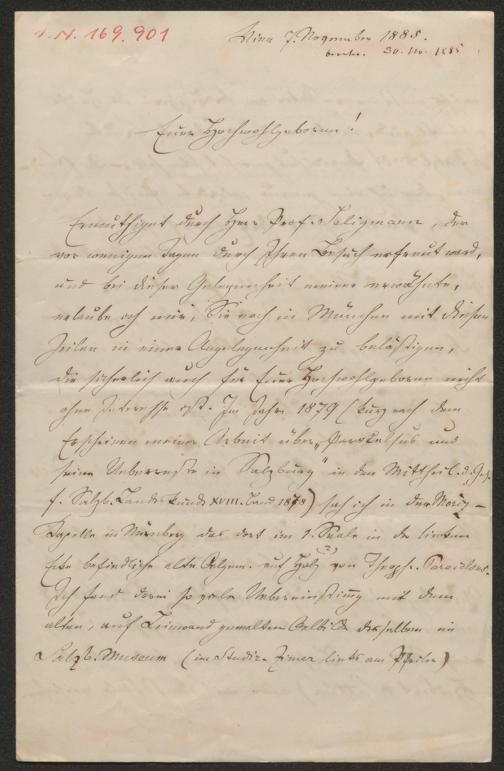 I. N. 169.901
Wien 7. November 1885.
beantw. 30. Nov. 1885
Euer Hochwohlgeboren!
Ermuthiget durch Herrn Prof. Seligmann, der
vor wenigen Tagen durch Ihren Besuch erfreut ward,
und bei dieser Gelegenheit meiner erwähnte,
erlaube ich mir, Sie noch in München mit diesen
Zeilen in einer Angelegenheit zu belästigen,
die sicherlich auch für Euer Hochwohlgeboren nicht
ohne Interesse ist. Im Jahre 1879 (kurz nach dem
Erscheinen meiner Arbeit über „Paracelsus und
seine Ueberreste in Salzburg" in den Mittheil. d. G.
f. Salzb. Landeskunde XVIII. Band 1878) sah ich in der Moriz-
Kapelle in Nürnberg das dort im 1. Saale in der linken
Ecke befindliche alte Oelgem. auf Holz (?) von Theoph. Paracelsus.
Ich fand darin so viele Uebereinstimmung mit dem
alten, auf Leinwand gemalten Oelbilde desselben im
Salzb. Museum (im Studier-Zimmer links am Pfeiler)